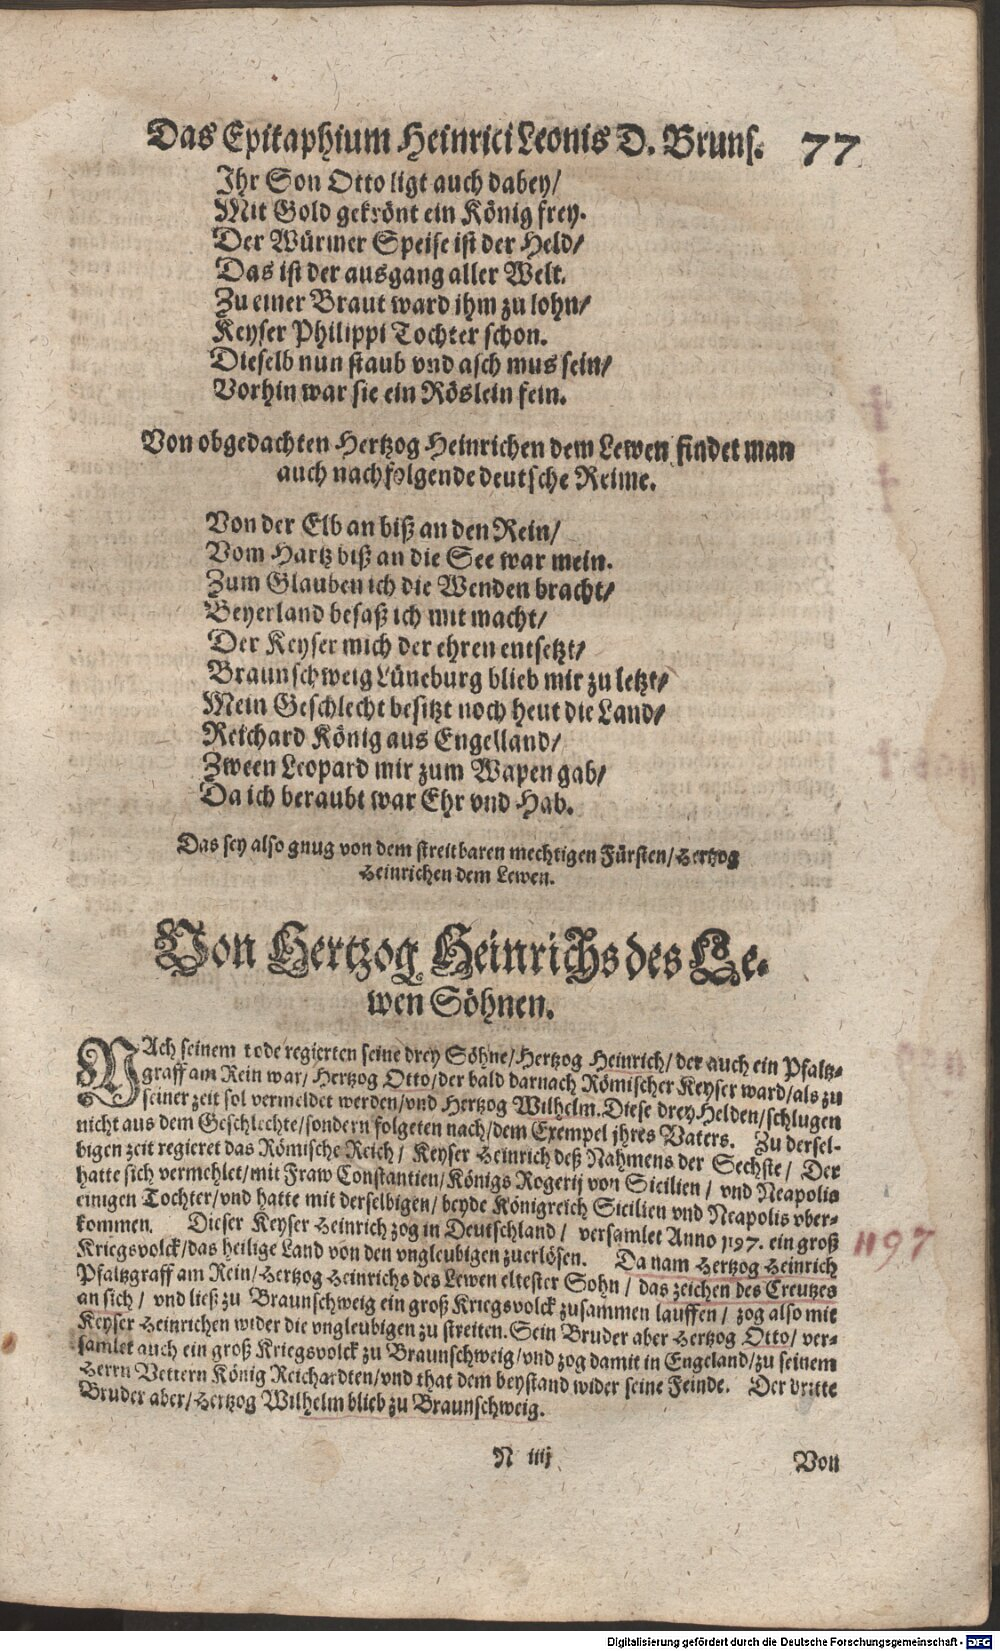 Das Epitaphium Heinrici Leonis D. Bruns. 77
Ihr Son Otto ligt auch dabey/
Mit Gold gekrönt ein König frey.
Der Würmer Speise ist der Held/
Das ist der ausgang aller Welt.
Zu einer Braut ward ihm zu lohn/
Keyser Philippi Tochter schon.
Dieselb nun staub vnd asch mus sein/
Vorhin war sie ein Röslein fein.
Von obgedachten Hertzog Heinrichen dem Lewen findet man
auch nachfolgende deutsche Reime.
Von der Elb an biß an den Rein/
Vom Hartz biß an die See war mein.
Zum Glauben ich die Wenden bracht/
Beyerland besaß ich mit macht/
Der Keyser mich der ehren entsetzt/
Braunschweig Lüneburg blieb mir zu letzt/
Mein Geschlecht besitzt noch heut die Land/
Reichard König aus Engelland/
Zween Leopard mir zum Wapen gab/
Da ich beraubt war Ehr vnd Hab.
Das sey also gnug von dem streitbaren mechtigen Fürsten/Hertzog
Heinrichen dem Lewen.
Von Hertzog Heinrichs des Le-
wen Söhnen.
NAch seinem tode regierten seine drey Söhne/Hertzog Heinrich/der auch ein Pfaltz-
graff am Rein war/Hertzog Otto/der bald darnach Römischer Keyser ward/als zu
seiner zeit sol vermeldet werden/vnd Hertzog Wilhelm. Diese drey Helden/schlugen
nicht aus dem Geschlechte/sondern folgeten nach/dem Exempel jhres Vaters. Zu dersel-
bigen zeit regieret das Römische Reich/ Keyser Heinrich deß Nahmens der Sechste/ Der
hatte sich vermehlet/mit Fraw Constantien/Königs Rogerij von Sicilien/ vnd Neapolis
einigen Tochter/vnd hatte mit derselbigen/ beyde Königreich Sicilien vnd Neapolis vber-
kommen. Dieser Keyser Heinrich zog in Deutschland/ versamlet Anno 1197. ein groß
1197
Kriegsvolck/das heilige Land von den vngleubigen zuerlösen. Da nam Hertzog Heinrich
Pfaltzgraff am Rein/Hertzog Heinrichs des Lewen eltester Sohn/ das zeichen des Creutzes
an sich/ vnd ließ zu Braunschweig ein groß Kriegsvolck zusammen lauffen/ zog also mit
Keyser Heinrichen wider die vngleubigen zu streiten. Sein Bruder aber Hertzog Otto/ ver-
samlet auch ein groß Kriegsvolck zu Braunschweig/vnd zog damit in Engeland/zu seinem
Herrn Vettern König Reichardten/vnd that dem beystand wider seine Feinde. Der dritte
Bruder aber/Hertzog Wilhelm blieb zu Braunschweig.
N iiij Von
Digitalisierung gefördert durch die Deutsche Forschungsgemeinschaft - DFG